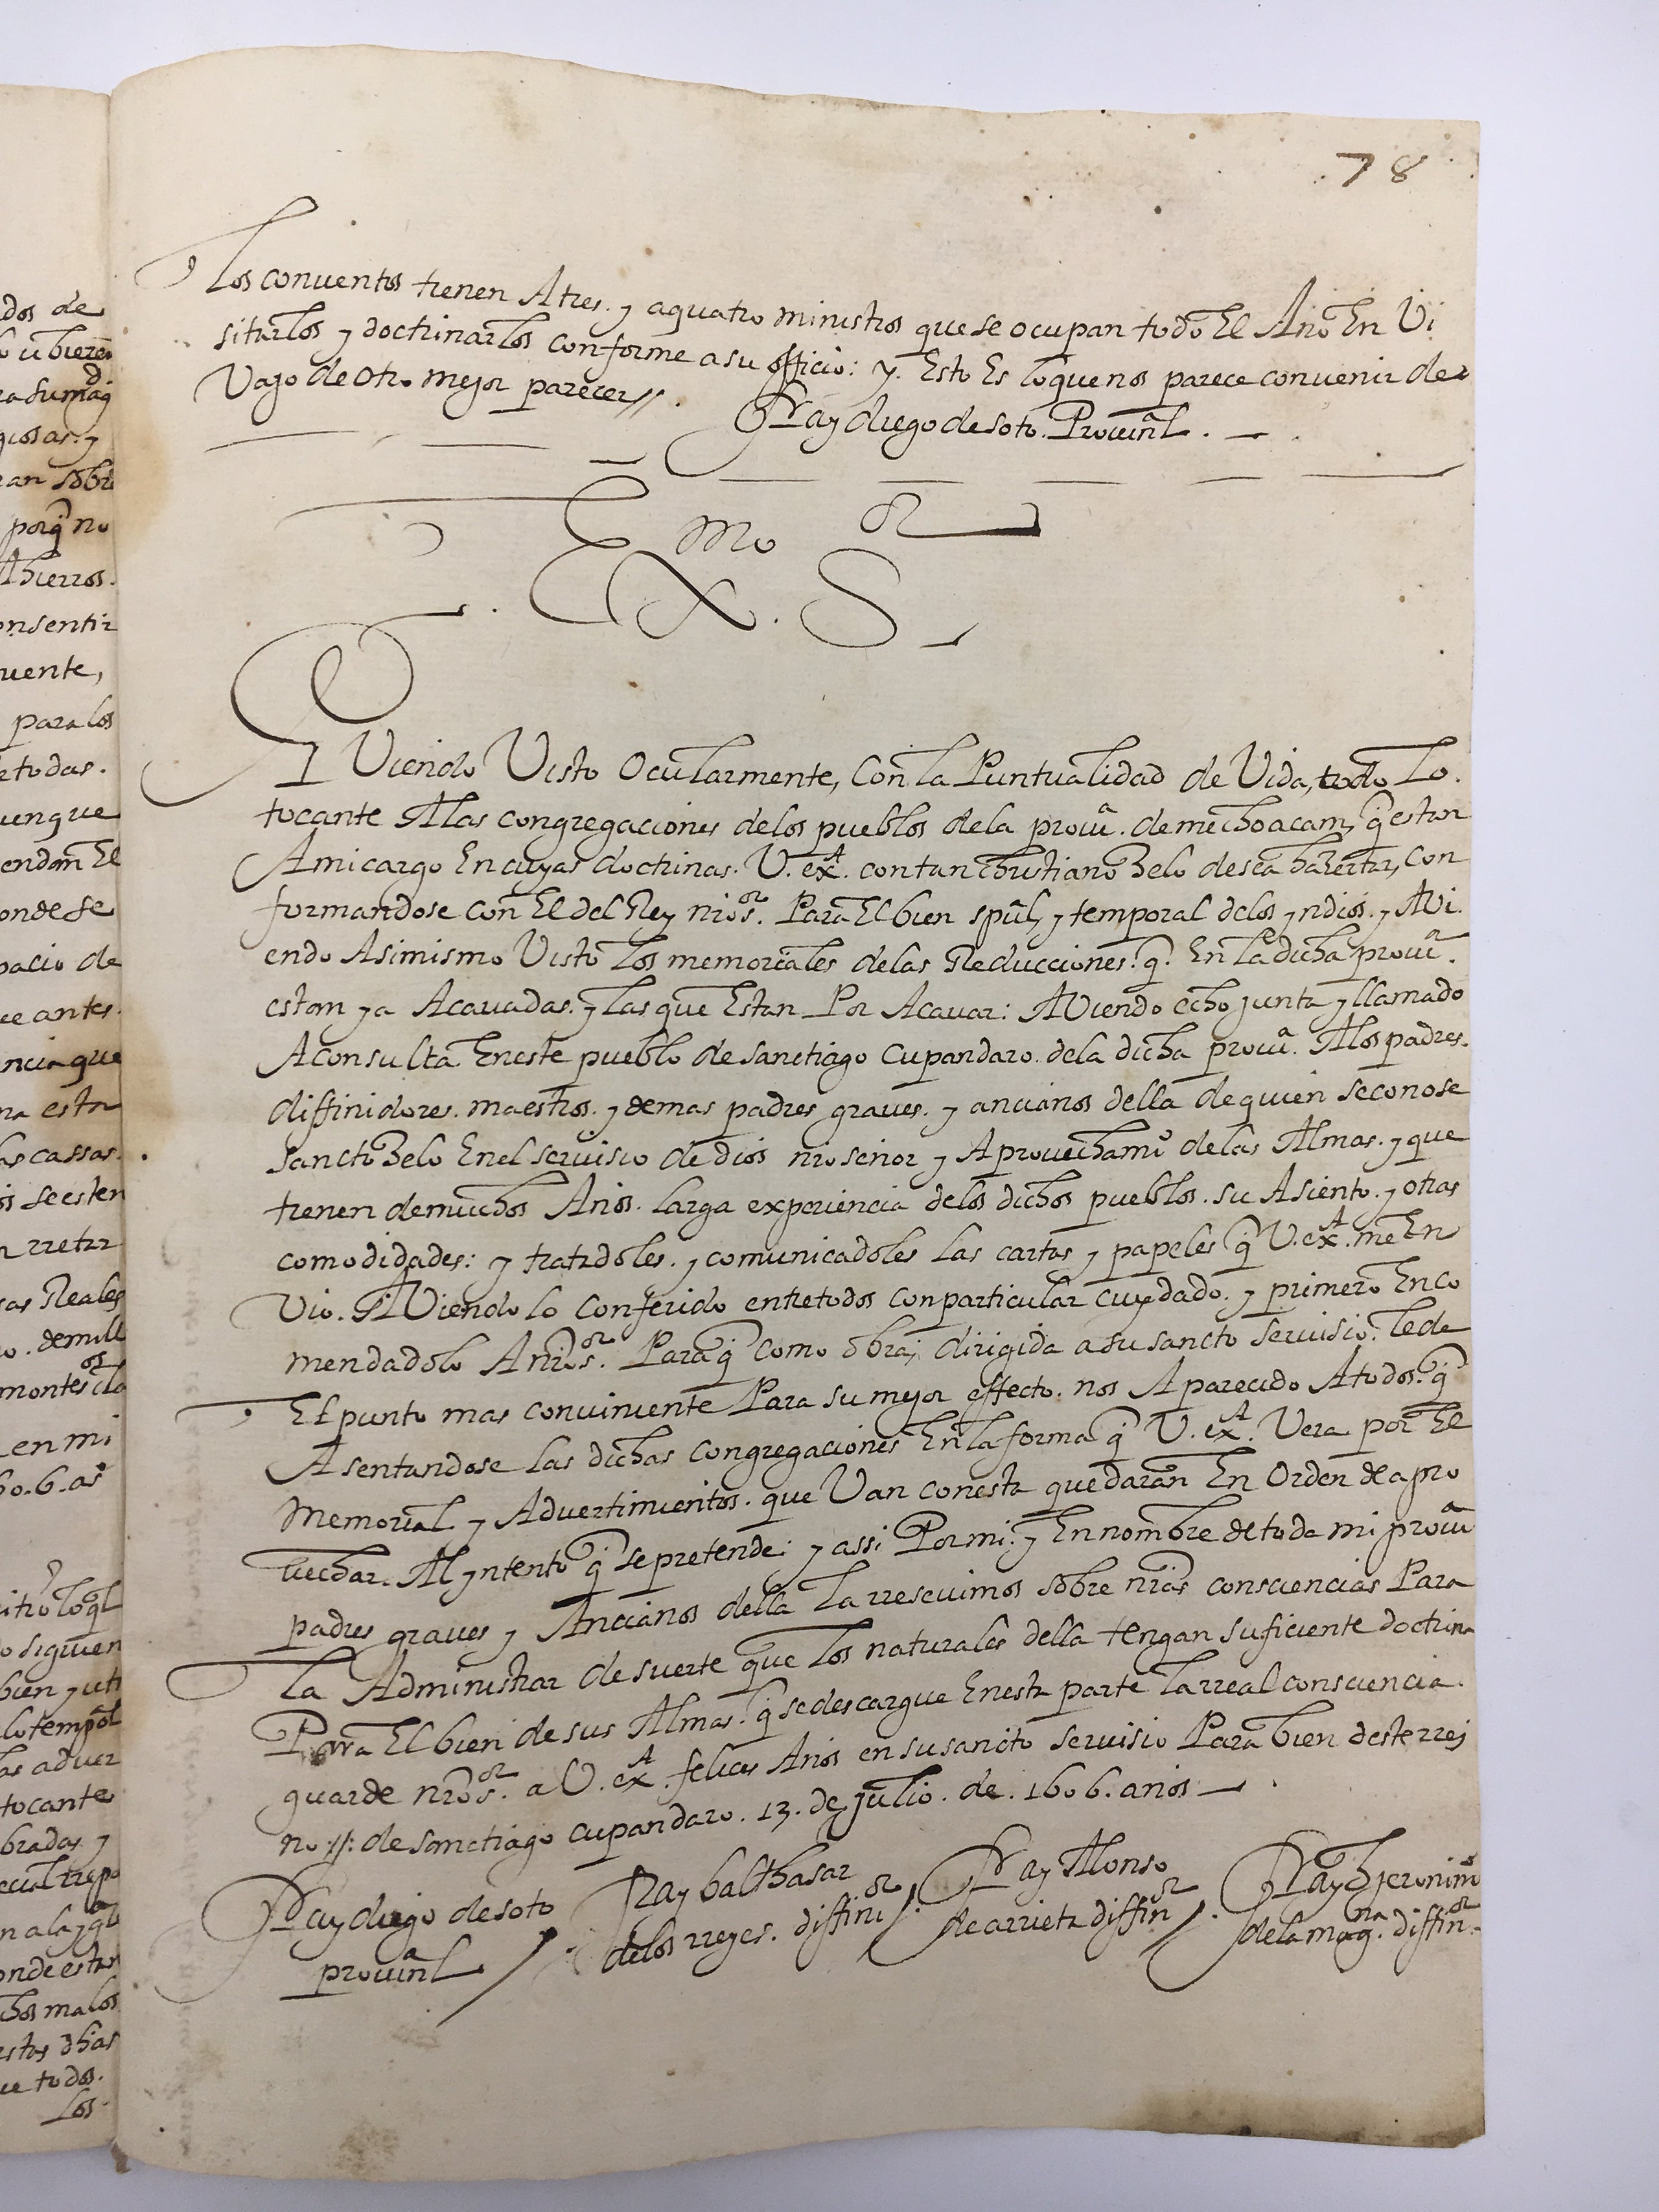 78
Los conuentos tienen A tres. y aquatro ministros que se ocupan todo El Año En Vi
sitarlos y doctrinarlos conforme a su officio: y. Esto Es lo que nos parece conuenir de
Vajo de otro mejor parecer//.
Fray diego de soto. Prouinl.
Exmo. Sor
AViendo Visto Ocularmente, Con la Puntualidad de Vida, todo Lo.
tocante A las congregaciones de los pueblos de la proua. de mechoacam, q̃ estan
A mi cargo En cuyas doctrinas. V. exA. con tan christiano Zelo desea hazertar, con
formandose con El del Rey nro sor. Para El bien spũl, y temporal de los yndios. y AVi.
endo Asimismo Visto Los memoriales de las Reducciones. q̃. En la dicha proua.
estan ya Acauadas. y las que Estan Por Acauar: AViendo echo junta y llamado
A consulta En este pueblo de sanctiago cupandaro. de la dicha proua. A los padres.
diffinidores. maestros. y demas padres graues. y ancianos della de quien se conose
sancto Zelo En el seruisio de dios nro señor y Aprouechamio de las Almas. y que
tienen de muchos Años. larga experiencia de los dichos pueblos. su Asiento. y otras
comodidades: y tratadoles. y comunicadoles las cartas y papeles q̃ V. exA. me En
Vio. AViendo lo conferido entre todos con particular cuydado. y primero Enco
mendadolo A nro sor. Para q̃ como obra, dirigida a su sancto seruisio. le de
El punto mas conuiniente Para su mejor effecto. nos A parecido A todos. q̃
Asentandose las dichas congregaciones En la forma q̃ V. exA. Vera por El
Memorial y Aduertimientos. que Van con esta quedaran En Orden de apro
uechar. Al yntento q̃ se pretende: y assi Por mi. y En nombre de toda mi proua
padres graues y Ancianos della La rresceuimos sobre nras consciencias Para
La Administrar de suerte que Los naturales della tengan suficiente doctrina
Para El bien de sus Almas. q̃ se descargue En esta parte La rreal consciencia.
guarde nro sor. a V. exA. felices Años en su sancto seruisio Para bien deste rrei
no //: de sanctiago cupandaro. 13. de julio. de. 1606. años
Fray diego de soto
prouinl
Fray balthasar
de los rreyes. diffinior
Fray Alonso
de arrieta diffinor
Fray hieronimo
de la magna. diffinor.